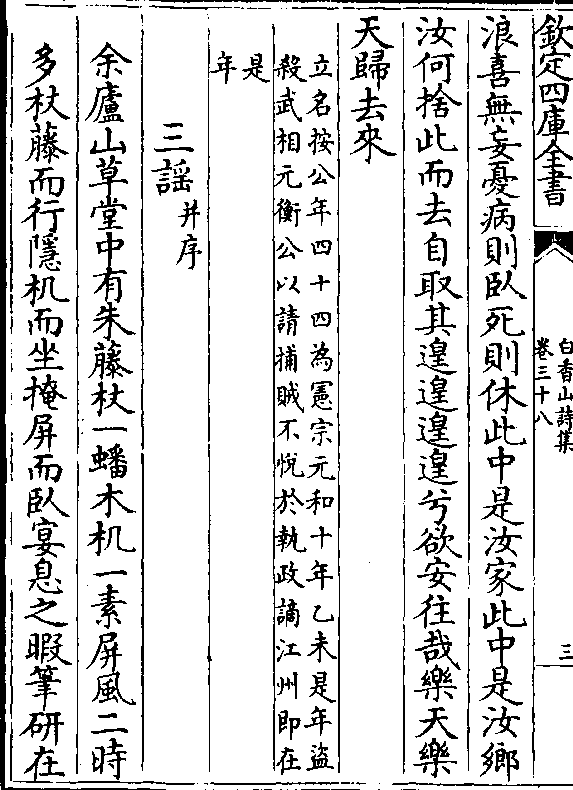 欽定四庫全書
白香山詩集
卷三十八
三
浪喜無妄憂病則臥死則休此中是汝家此中是汝鄉
汝何捨此而去自取其遑遑遑遑兮欲安往哉樂天樂
天歸去來
立名按公年四十四為憲宗元和十年乙未是年盜
殺武相元衡公以請捕賊不悅於執政謫江州即在
是
年
三謡并序
余廬山草堂中有朱藤杖一蟠木机一素屏風二時
多杖藤而行隱机而坐掩屏而臥宴息之暇筆研在